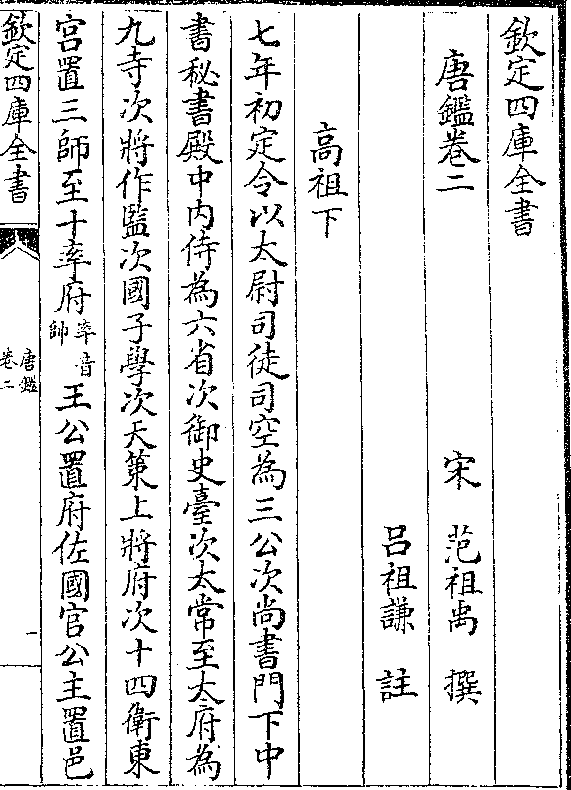 欽定四庫全書
唐鑑卷二
宋　范祖禹　撰
呂祖謙　註
高祖下
七年初定令以太尉司徒司空為三公次尚書門下中
書秘書殿中内侍為六省次御史臺次太常至太府為
九寺次將作監次國子學次天策上將府次十四衛東
宫置三師至十率府率音帥王公置府佐國官公主置邑
欽定四庫全書
唐鑑
卷二
一